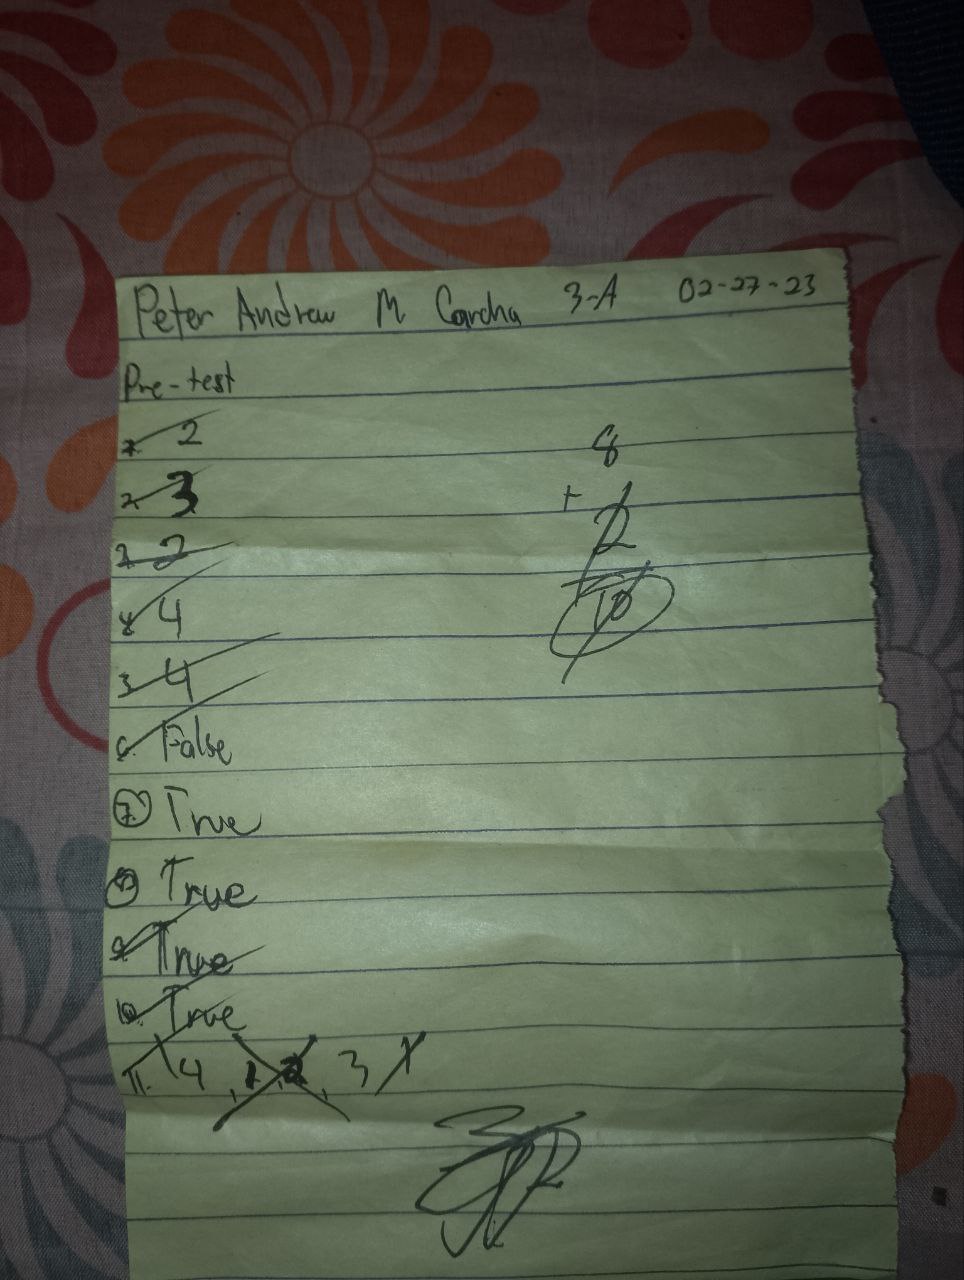 Peter Andrew M Concha 3-A 02-27-23
Pre-test
1. 2
2. 3
3. 2
4. 4
5. 4
6. False
7. True
8. True
9. True
10. True
11. 4, 1, 2, 3
8
+ 2
10